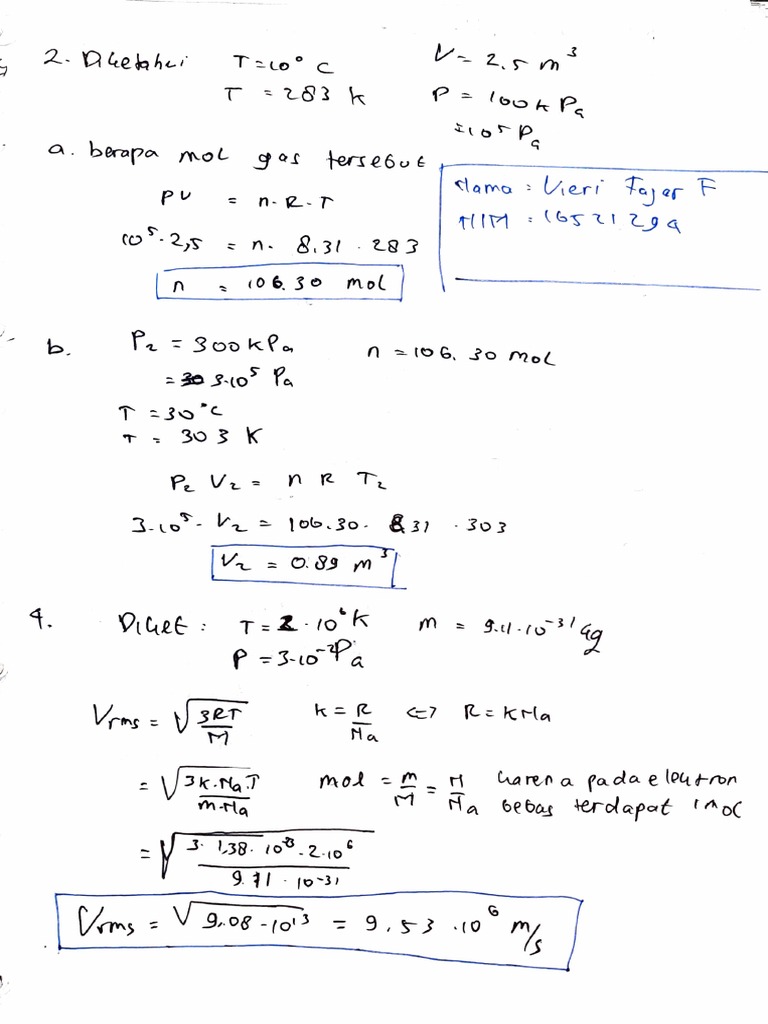 2. Diketahui T = 10° C V = 2.5 m³
T = 283 K P = 100 k Pa
= 10⁵ Pa
a. berapa mol gas tersebut
PV = n.R.T
10⁵.2,5 = n. 8.31 . 283
n = 106.30 mol
Nama : Vieri Fajar F
NIM :
b. P₂ = 300 kPa n = 106.30 mol
= 3.10⁵ Pa
T = 30°C
T = 303 K
P₂ V₂ = n R T₂
3.10⁵. V₂ = 106.30. 8 31 . 303
V₂ = 0.89 m³
4. Diket : T = 2.10⁶ K m = 9.11.10⁻³¹ kg
P = 3.10⁻² Pa
Vrms = √(3RT/M) k = R/Na <=> R = k Na
= √(3k.Na.T/m.Na) mol = m/M = N/Na karena pada elektron
bebas terdapat 1 mol
= √(3. 1,38. 10⁻²³. 2.10⁶/9.11 . 10⁻³¹)
Vrms = √(9.08.10¹³) = 9.53 .10⁶ m/s